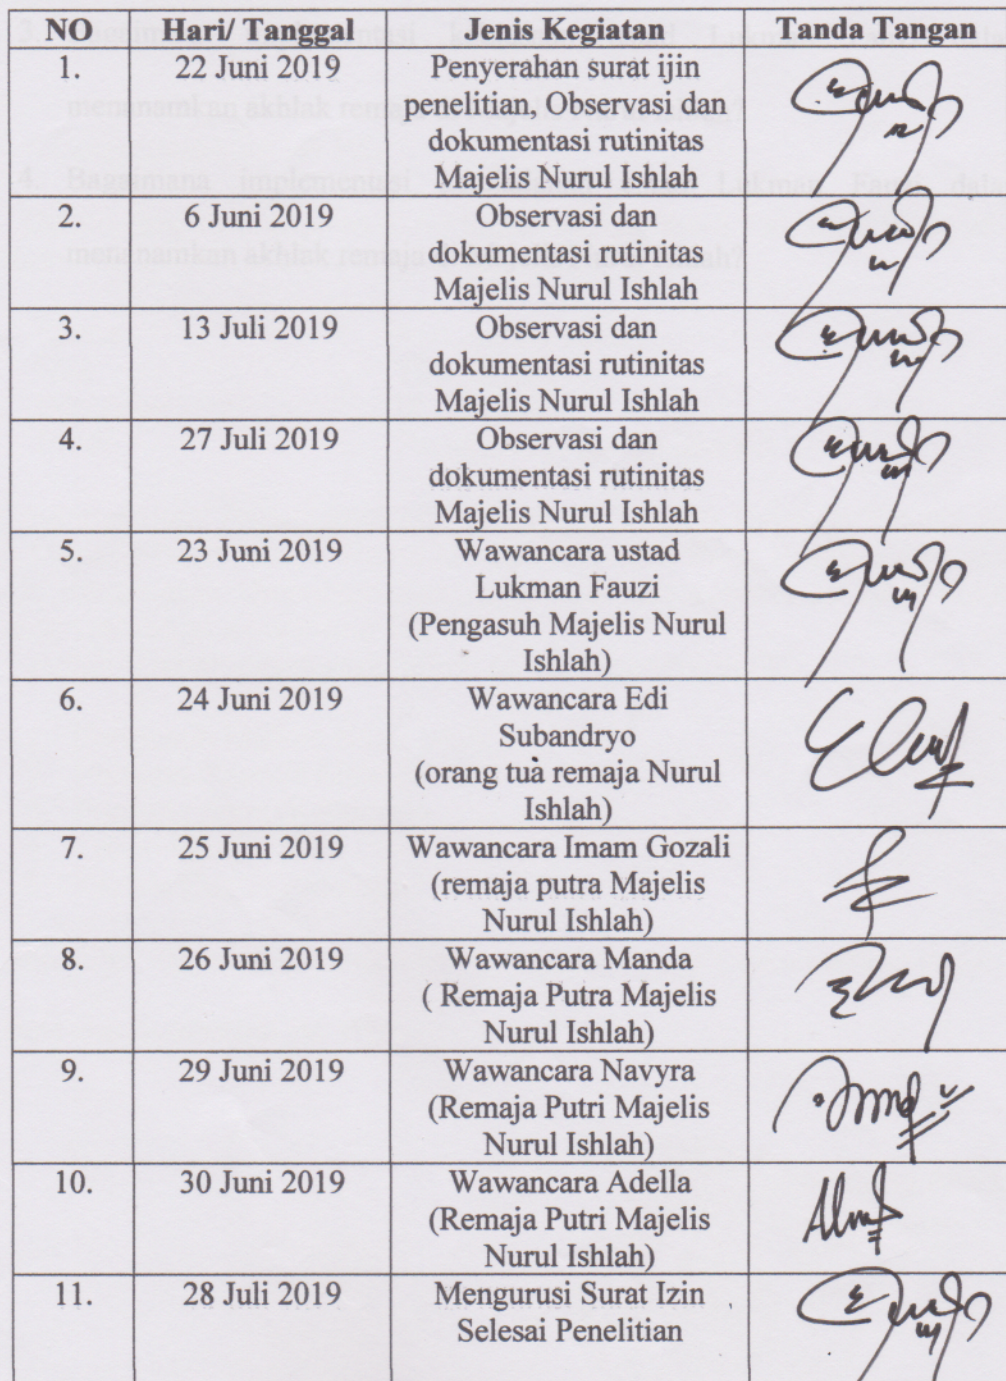 NO Hari/ Tanggal Jenis Kegiatan Tanda Tangan
1. 22 Juni 2019 Penyerahan surat ijin
penelitian, Observasi dan
dokumentasi rutinitas
Majelis Nurul Ishlah
2. 6 Juni 2019 Observasi dan
dokumentasi rutinitas
Majelis Nurul Ishlah
3. 13 Juli 2019 Observasi dan
dokumentasi rutinitas
Majelis Nurul Ishlah
4. 27 Juli 2019 Observasi dan
dokumentasi rutinitas
Majelis Nurul Ishlah
5. 23 Juni 2019 Wawancara ustad
Lukman Fauzi
(Pengasuh Majelis Nurul
Ishlah)
6. 24 Juni 2019 Wawancara Edi
Subandryo
(orang tua remaja Nurul
Ishlah)
7. 25 Juni 2019 Wawancara Imam Gozali
(remaja putra Majelis
Nurul Ishlah)
8. 26 Juni 2019 Wawancara Manda
( Remaja Putra Majelis
Nurul Ishlah)
9. 29 Juni 2019 Wawancara Navyra
(Remaja Putri Majelis
Nurul Ishlah)
10. 30 Juni 2019 Wawancara Adella
(Remaja Putri Majelis
Nurul Ishlah)
11. 28 Juli 2019 Mengurusi Surat Izin
Selesai Penelitian